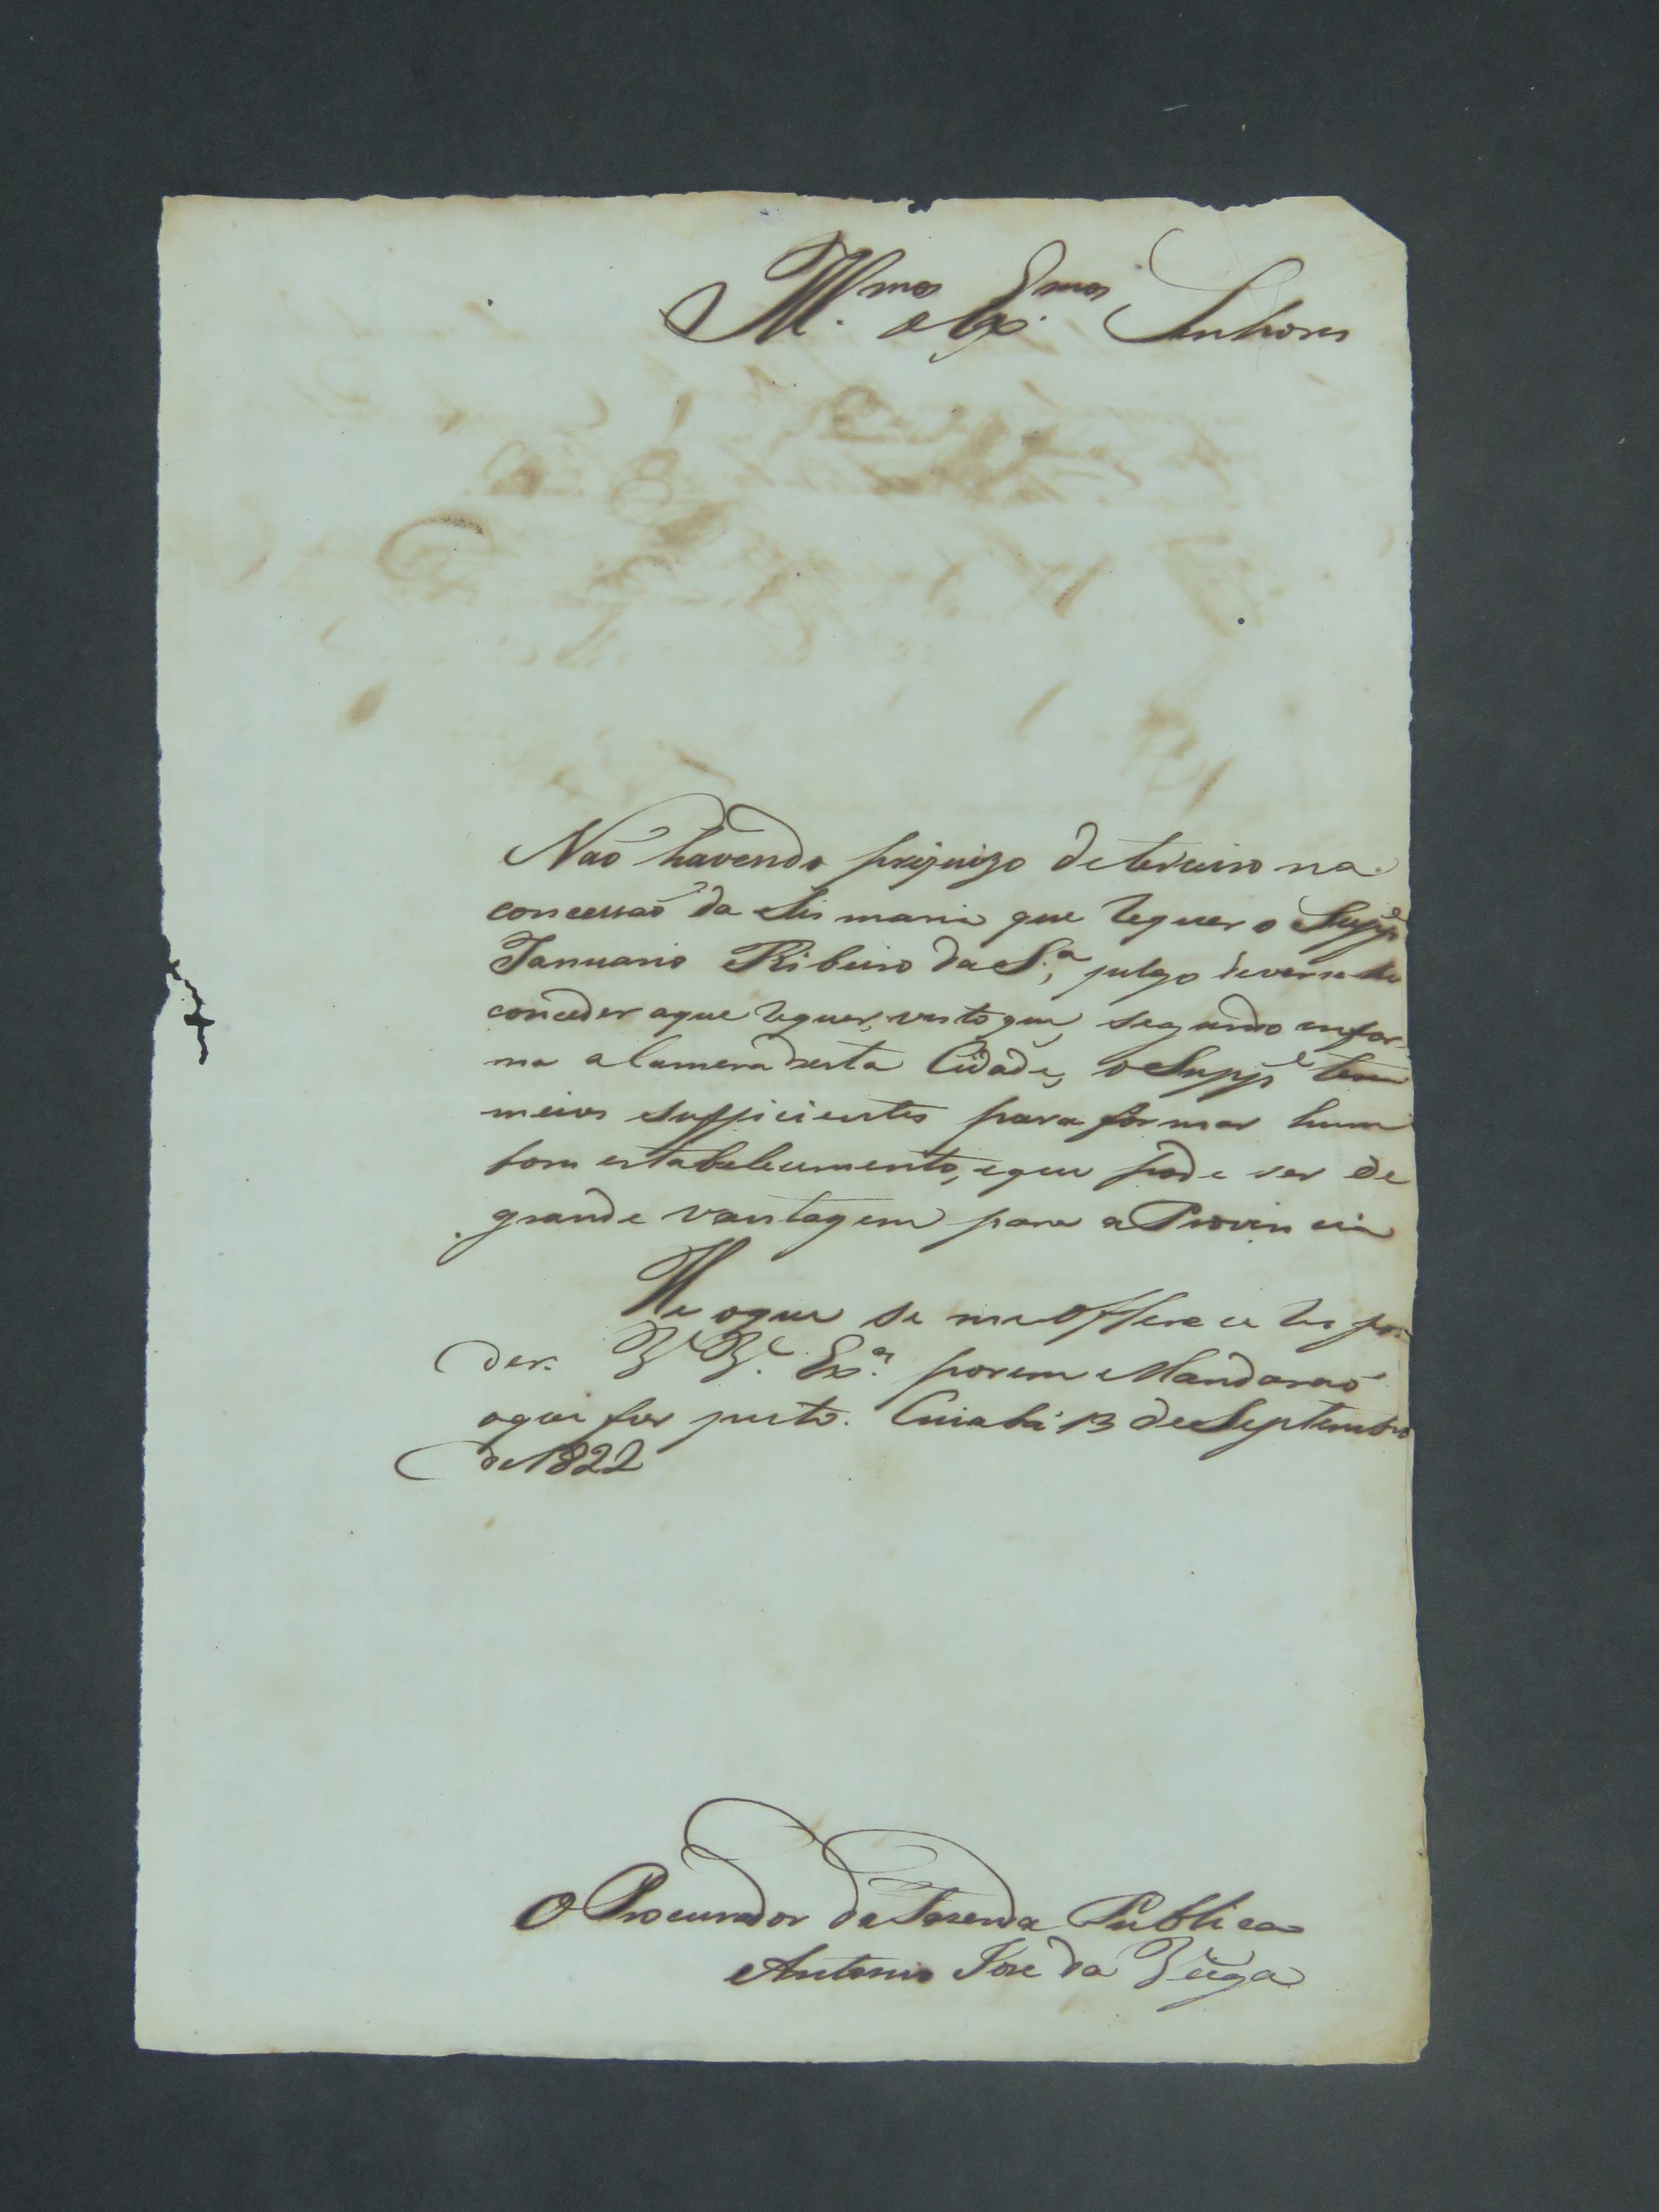 Ill.mos e Ex.mos Senhores
Naõ havendo prejuizo de terceiro na
concessaõ da Sismaria que requer o Supp.e
Januario Ribeiro da S.a, julgo dever-se lhe
conceder aque requer, visto que, segundo infor-
ma a Camera desta Cidade, o Supp.e tem
meios sufficientes para formar hum
bom estabelecimento, eque pode ser de
grande vantagem para a Provincia
He oque se me offerece respon-
der. V.V. Ex.as porem Mandaraõ
oque for justo. Cuiabá 13 de Septembro
de 1822
O Procurador da Fazenda Publica
Antonio Jose da Veiga